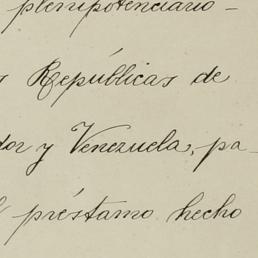 plenipotenciario-
s Repúblicas de
dor y Venezuela, pa-
préstamo hecho